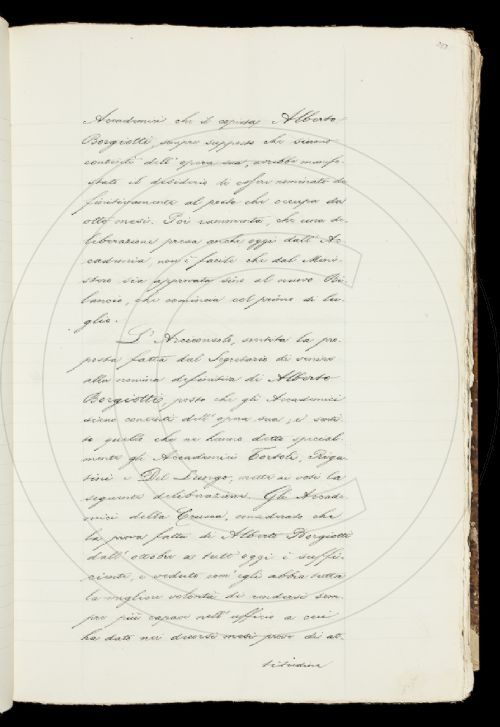 Accademici che il copista Alberto
Borgiotti, sempre supposto che siano
contenti dell'opera sua, avrebbe manife-
stato il desiderio di essere nominato de
finitivamente al posto che occupa da
otto mesi. Poi rammenta, che una de-
liberazione presa anche oggi dall'Ac-
cademia, non è facile che dal Mini-
stero sia approvata sino al nuovo Bi-
lancio, che comincia col primo di lu-
glio.
L'Arciconsolo, sentita la pro-
posta fatta dal Segretario di venire
alla nomina definitiva di Alberto
Borgiotti, posto che gli Accademici
siano contenti dell'opera sua; e senti-
to quello che ne hanno detto special-
mente gli Accademici Tortoli, Riga
tini e Del Lungo, mette ai voti la
seguente deliberazione. Gli Accade-
mici della Crusca, considerato che
la prova fatta di Alberto Borgiotti
dall'ottobre a tutt'oggi è suffi-
ciente, e veduto com'egli abbia tutta
la migliore volontà di rendersi sem-
pre più capace nell'ufficio a cui
ha dato nei diversi mesi prove di at-
titudine